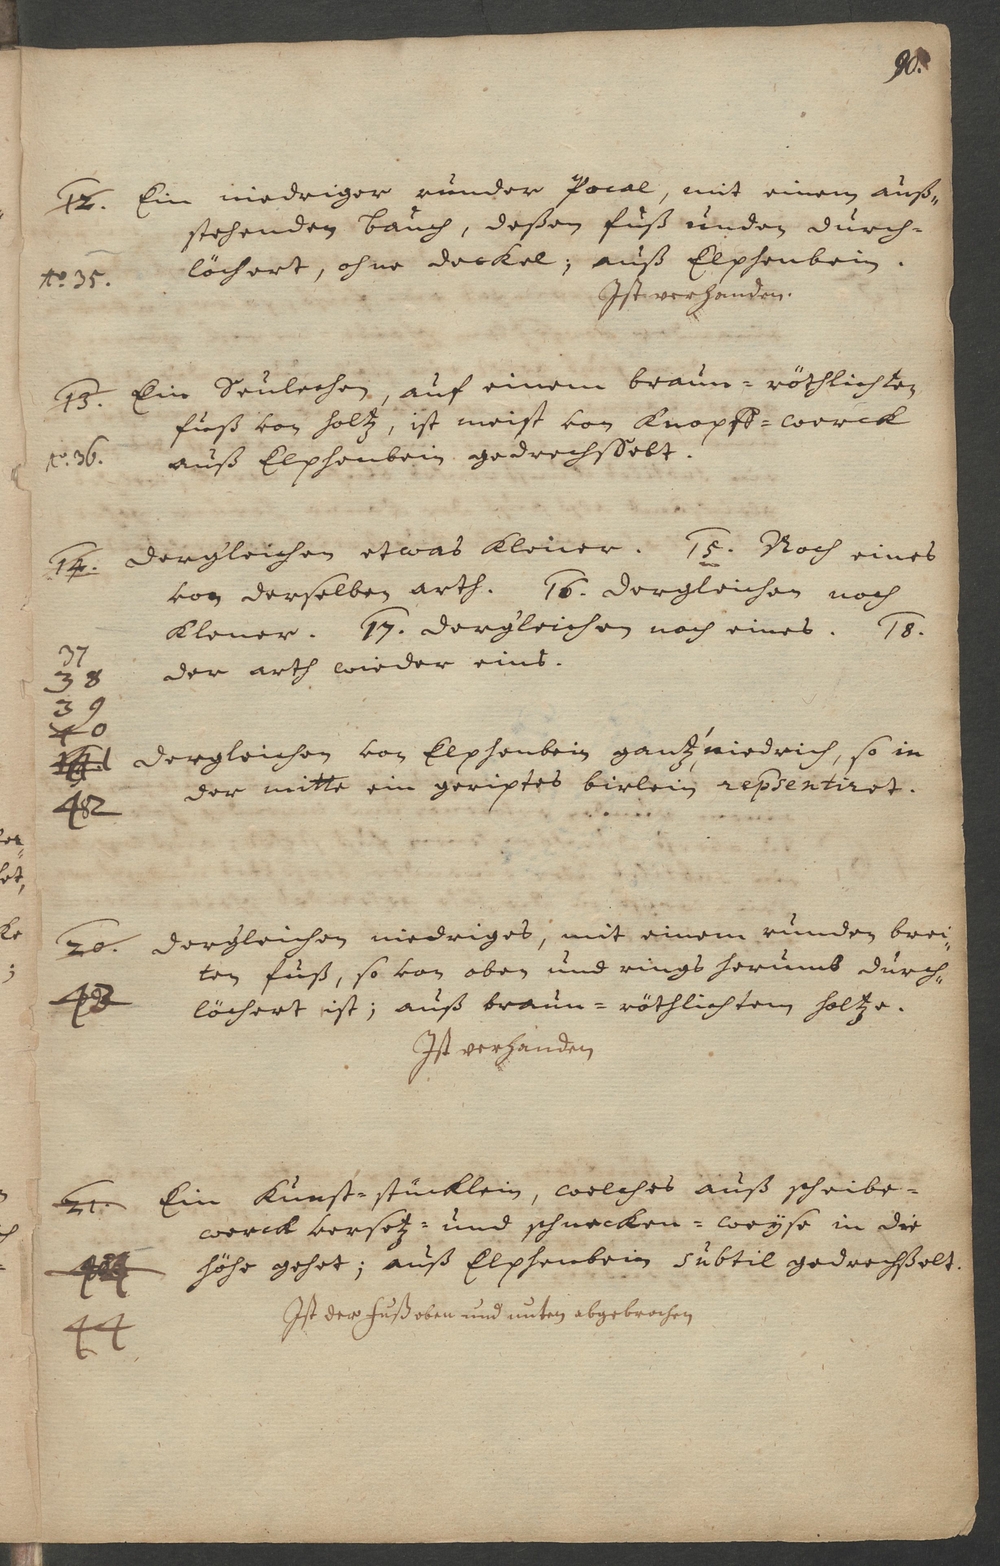 90.
12. Ein niedriger runder Pocal, mit einem auß„
stehenden bauch, deßen fuß unden durch=
No. 35. löchert, ohne deckel; auß Elphenbein.
Ist verhanden.
13. Ein Seulechen, auf einem braun=röthlichten
fueß von holtz, ist meist von Knopff=werck
No. 36. auß Elphenbein gedrechsselt.
14. dergleichen etwas kleiner. 15. Noch eines
von derselben arth. 16. dergleichen noch
klener. 17. dergleichen noch eines. 18.
37
38 der arth wieder eins.
39
40
41 dergleichen von Elphenbein gantz niedrich, so in
der mitte ein geriptes birlein repsentiret.
42
20. dergleichen niedriges, mit einem runden brei„
ten fuß, so von oben und rings herumb durch„
43 löchert ist; auß braun=röthlichtem holtze.
Ist verhanden
21. Ein Kunst=stücklein, welches auß scheibe=
werck versetz= und schnecken=weyse in die
höhe gehet; auß Elphenbein subtil gedrechßelt.
44 Ist der Fuß oben und unten abgebrochen